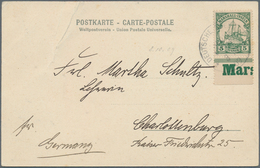 POSTKARTE - CARTE-POSTALE
Weltpostverein - Union Postale Universelle.
Frl. Martha Schultz,
Lehrerin
Charlottenburg
per
Germany
Kaiser Friedrichstr. 25.
5 5
Mars